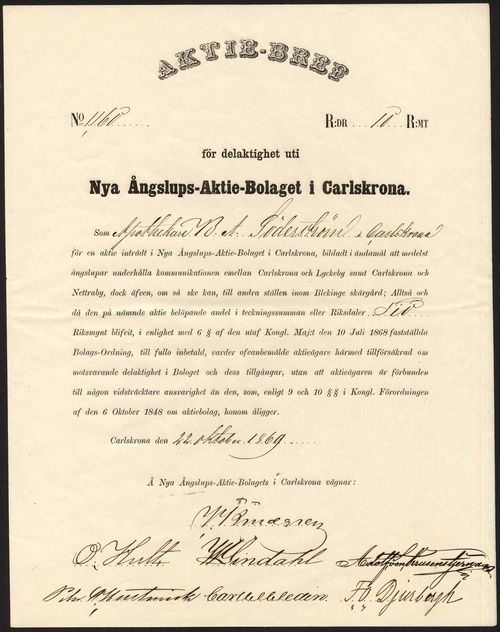 AKTIE-BREF
No 1160 R:DR 10 R:MT
för delaktighet uti
Nya Ångslups-Aktie-Bolaget i Carlskrona.
Som Apothekare B. A. Söderström i Carlskrona
för en aktie inträdt i Nya Ångslups-Aktie-Bolaget i Carlskrona, bildadt i ändamål att medelst
ångslupar underhålla kommunikationen emellan Carlskrona och Lyckeby samt Carlskrona och
Nettraby, dock äfven, om så ske kan, till andra ställen inom Blekinge skärgård; Alltså och
då den på nämnde aktie belöpande andel i teckningssumman eller Riksdaler Tio
Riksmynt blifvit, i enlighet med 6 § af den utaf Kongl. Maj:t den 10 Juli 1868 fastställda
Bolags-Ordning, till fullo inbetald, varder ofvanbemälde aktieägare härmed tillförsäkrad om
motsvarande delaktighet i Bolaget och dess tillgångar, utan att aktieägaren är förbunden
till någon vidsträcktare ansvarighet än den, som, enligt 9 och 10 §§ i Kongl. Förordningen
af den 6 Oktober 1848 om aktiebolag, honom åligger.
Carlskrona den 22 oktober 1869
Å Nya Ångslups-Aktie-Bolagets i Carlskrona vägnar:
O. Hult Lindahl
F. O. Djurbergh